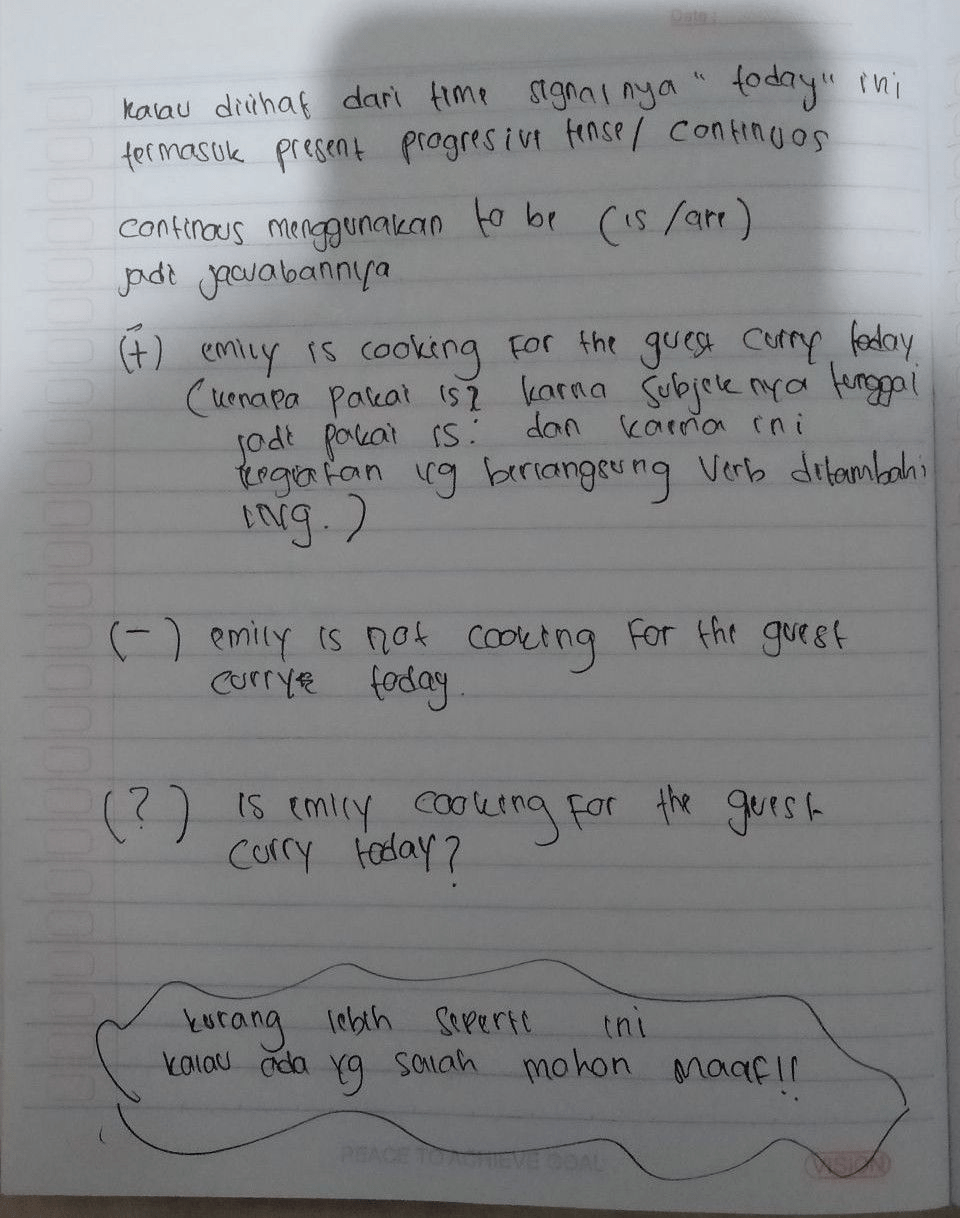 Date :
kalau dilihat dari time signal nya " today " ini
termasuk present progresive tense / continuos
continous menggunakan to be ( is / are )
jadi jawabannya
(+) emily is cooking for the guest curry today
( kenapa pakai is? karna subjek nya tunggal
jadi pakai is : dan karna ini
kegiatan yg berlangsung verb ditambahi
ing. )
(-) emily is not cooking for the guest
curry today.
(?) is emily cooking for the guest
curry today?
kurang lebih seperti ini
kalau ada yg salah mohon maaf!!
PEACE TO ACHIEVE GOAL
VISION